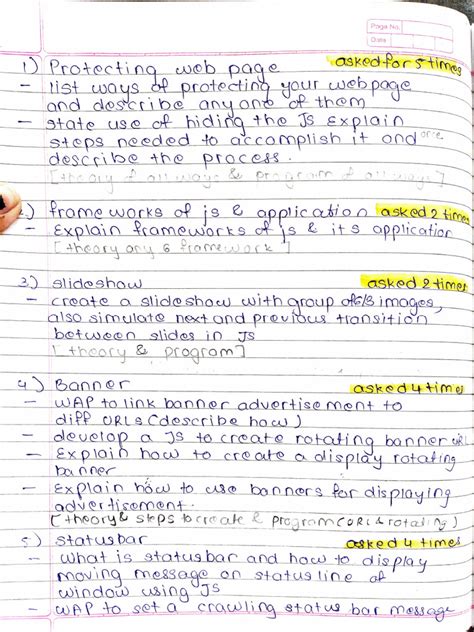 Page No.
Date
1) Protecting web page asked for 5 times
- list ways of protecting your webpage
and describe any one of them
- state use of hiding the JS Explain
steps needed to accomplish it and once
describe the process.
[theory of all ways & program of all ways]
2.) frameworks of js & application asked 2 times
- Explain frameworks of js & its application
[theory any 6 framework]
3.) slideshow asked 2 times
- create a slideshow with group of 6/3 images,
also simulate next and previous transition
between slides in JS
[theory & program]
4.) Banner asked 4 times
- WAP to link banner advertisement to
diff URLs (describe how)
- develop a JS to create rotating banner URL
- Explain how to create a display rotating
banner
- Explain how to use banners for displaying
advertisement.
[theory & steps to create & program (URL & rotating)]
5.) statusbar asked 4 times
- what is statusbar and how to display
moving message on status line of
window using JS
- WAP to set a crawling status bar message